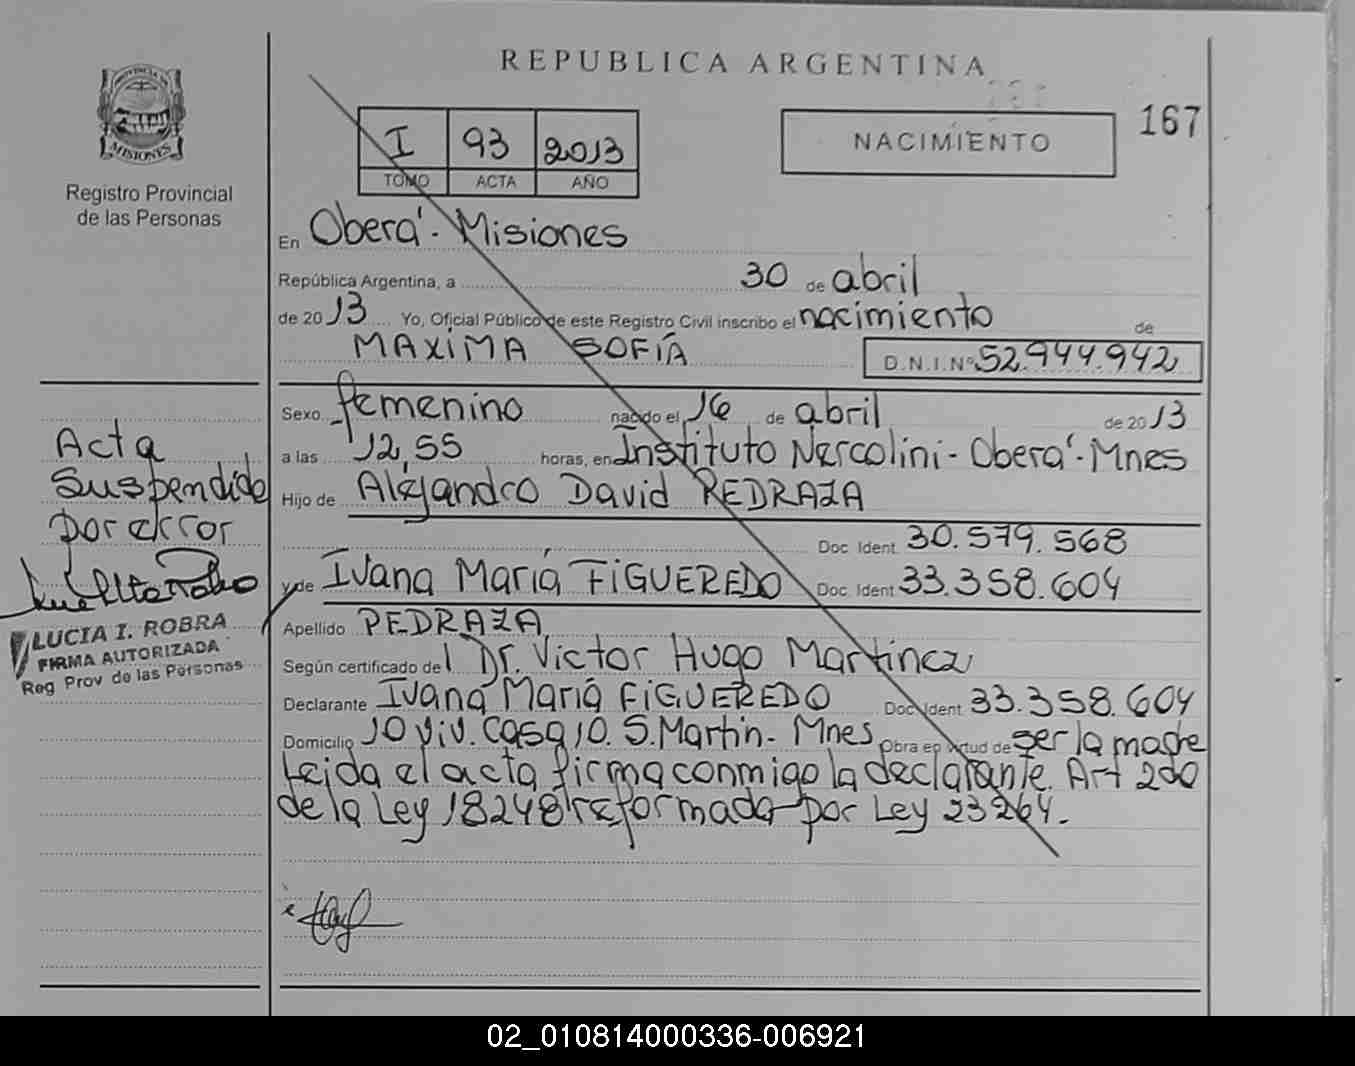 REPUBLICA ARGENTINA
PROVINCIA DE
MISIONES
Registro Provincial
de las Personas
I 93 2013
TOMO ACTA AÑO
NACIMIENTO
167
En Oberá - Misiones
República Argentina, a 30 de abril
de 2013 Yo, Oficial Público de este Registro Civil inscribo el nacimiento de
MAXIMA SOFÍA D.N.I.Nº 52.944.942
Sexo femenino nacido el 16 de abril de 2013
a las 12,55 horas, en Instituto Nercolini - Oberá - Mnes
Hijo de Alejandro David PEDRAZA
Doc. Ident. 30.579.568
y de Ivana María FIGUEREDO Doc. Ident. 33.358.604
Apellido PEDRAZA
Según certificado del Dr. Victor Hugo Martinez
Declarante Ivana María FIGUEREDO Doc. Ident. 33.358.604
Domicilio 10 viv. casa 10. S. Martin - Mnes Obra en virtud de ser la madre
Leida el acta firma conmigo la declarante. Art 2do
de la Ley 18248 reformada por Ley 23264.
Acta
suspendida
por error
LUCIA I. ROBRA
FIRMA AUTORIZADA
Reg Prov de las Personas
02_010814000336-006921